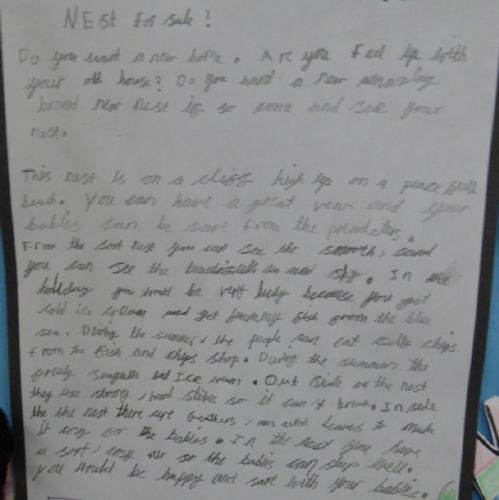 NEst for sale!
Do you want a new home. Are you feel up with
your old house? Do you want a new amazing
brand new nest if so come and see your
nest.
This nest is on a cliff high up on a peace full
beach. You can have a great veiw and your
babies can be safe from the predeters.
From the soft nest you can see the smooth, sand
you can see the beautifull sea and sky. In the
holiday you would be very lucky because you get
cold ice cream and get yummy fish from the blue
sea. During the summer the people can eat salty chips
from the fish and chips shop. During the summer the
greedy seagulls eat Ice cream. Out side of the nest
they use strong, hard sticks so it can't break. In side
the nest there are feathers, moss and leaves to make
it cosy for the babies. In the nest you have
a soft, cosy so the babies can sleep well.
you would be happy and safe with your babies.